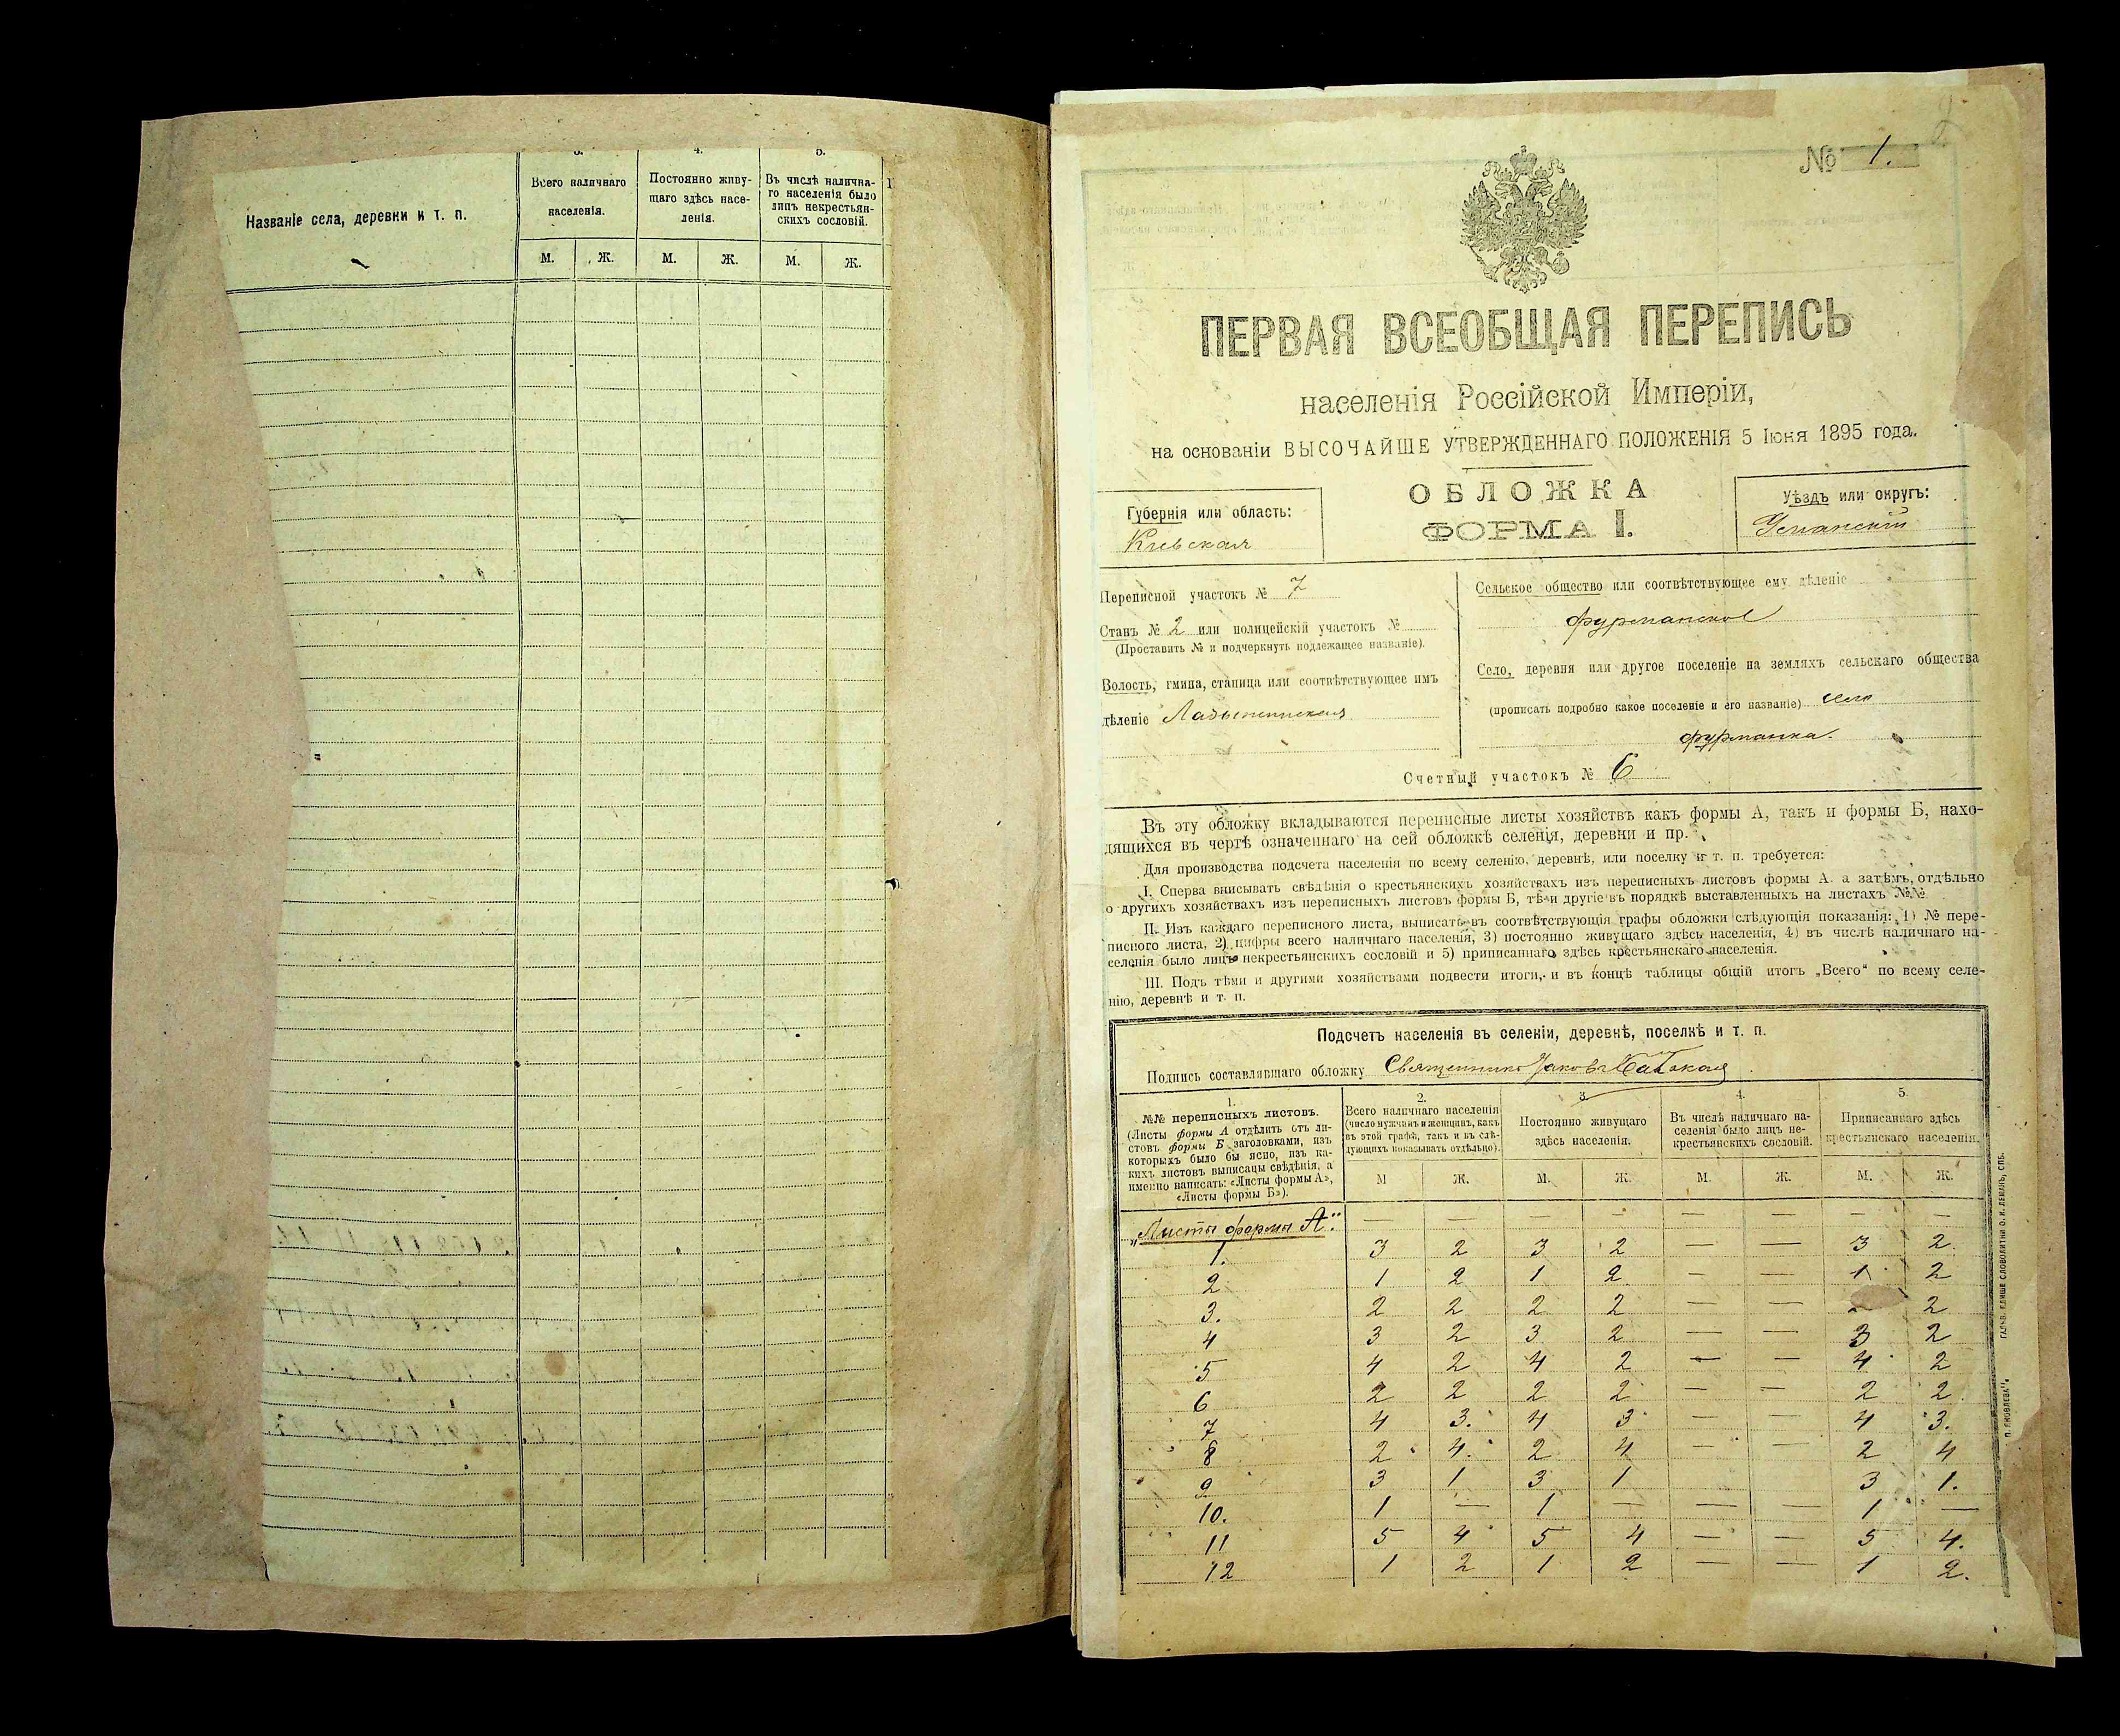 3.
4.
5.
Названіе села, деревни и т. п.
Всего наличнаго
населенія.
Постоянно живу-
щаго здѣсь насе-
ленія.
Въ числѣ налична-
го населенія было
лицъ некрестьян-
скихъ сословій.
М. Ж. М. Ж. М. Ж.
2
№ 1.
ПЕРВАЯ ВСЕОБЩАЯ ПЕРЕПИСЬ
населенія Россійской Имперіи,
на основаніи ВЫСОЧАЙШЕ УТВЕРЖДЕННАГО ПОЛОЖЕНІЯ 5 Іюня 1895 года.
ОБЛОЖКА
ФОРМА I.
Губернія или область:
Кіевская
Уѣздъ или округъ:
Уманскій
Переписной участокъ № 7
Станъ № 2 или полицейскій участокъ №
(Проставить № и подчеркнуть подлежащее названіе).
Волость, гмина, станица или соотвѣтствующее имъ
дѣленіе Ладыжинская
Сельское общество или соотвѣтствующее ему дѣленіе
фурманское
Село, деревня или другое поселеніе на земляхъ сельскаго общества
(прописать подробно какое поселеніе и его названіе) село
фурманка.
Счетный участокъ № 6
Въ эту обложку вкладываются переписные листы хозяйствъ какъ формы А, такъ и формы Б, нахо-
дящихся въ чертѣ означеннаго на сей обложкѣ селенія, деревни и пр.
Для производства подсчета населенія по всему селенію, деревнѣ, или поселку и т. п. требуется:
I. Сперва вписывать свѣдѣнія о крестьянскихъ хозяйствахъ изъ переписныхъ листовъ формы А. а затѣмъ, отдѣльно
о другихъ хозяйствахъ изъ переписныхъ листовъ формы Б, тѣ и другіе въ порядкѣ выставленныхъ на листахъ №№
II. Изъ каждаго переписного листа, выписать въ соотвѣтствующія графы обложки слѣдующія показанія: 1) № пере-
писного листа, 2) цифры всего наличнаго населенія, 3) постоянно живущаго здѣсь населенія, 4) въ числѣ наличнаго на-
селенія было лицъ некрестьянскихъ сословій и 5) приписаннаго здѣсь крестьянскаго населенія.
III. Подъ тѣми и другими хозяйствами подвести итоги, и въ концѣ таблицы общій итогъ „Всего“ по всему селе-
нію, деревнѣ и т. п.
Подсчетъ населенія въ селеніи, деревнѣ, поселкѣ и т. п.
Подпись составлявшаго обложку Священникъ Яковъ
1.
№№ переписныхъ листовъ.
(Листы формы А отдѣлить отъ ли-
стовъ формы Б заголовками, изъ
которыхъ было бы ясно, изъ ка-
кихъ листовъ выписаны свѣдѣнія, а
именно написать: «Листы формы А»,
«Листы формы Б»).
2.
Всего наличнаго населенія
(число мужчинъ и женщинъ, какъ
въ этой графѣ, такъ и въ слѣ-
дующихъ показывать отдѣльно).
3.
Постоянно живущаго
здѣсь населенія.
4.
Въ числѣ наличнаго на-
селенія было лицъ не-
крестьянскихъ сословій.
5.
Приписаннаго здѣсь
крестьянскаго населенія.
М Ж. М. Ж. М. Ж. М. Ж.
„Листы формы А“. — — — — — — — —
1. 3 2 3 2 — — 3 2.
2 1 2 1 2 — — 1 2
3. 2 2 2 2 — — 2
4 3 2 3 2 — — 3 2
5 4 2 4 2 — — 4 2
6 2 2 2 2 — — 2 2
7 4 3. 4 3 — — 4 3.
8 2 4. 2 4 — — 2 4
9 3 1 3 1 3 1.
10. 1 — 1 — — — 1 —
11 5 4 5 4 — — 5 4.
12 1 2 1 2 — — 1 2.
СЛОВОЛИТНИ О. И. ЛЕМАНЪ, СПБ.
П. П. ЯКОВЛЕВА".